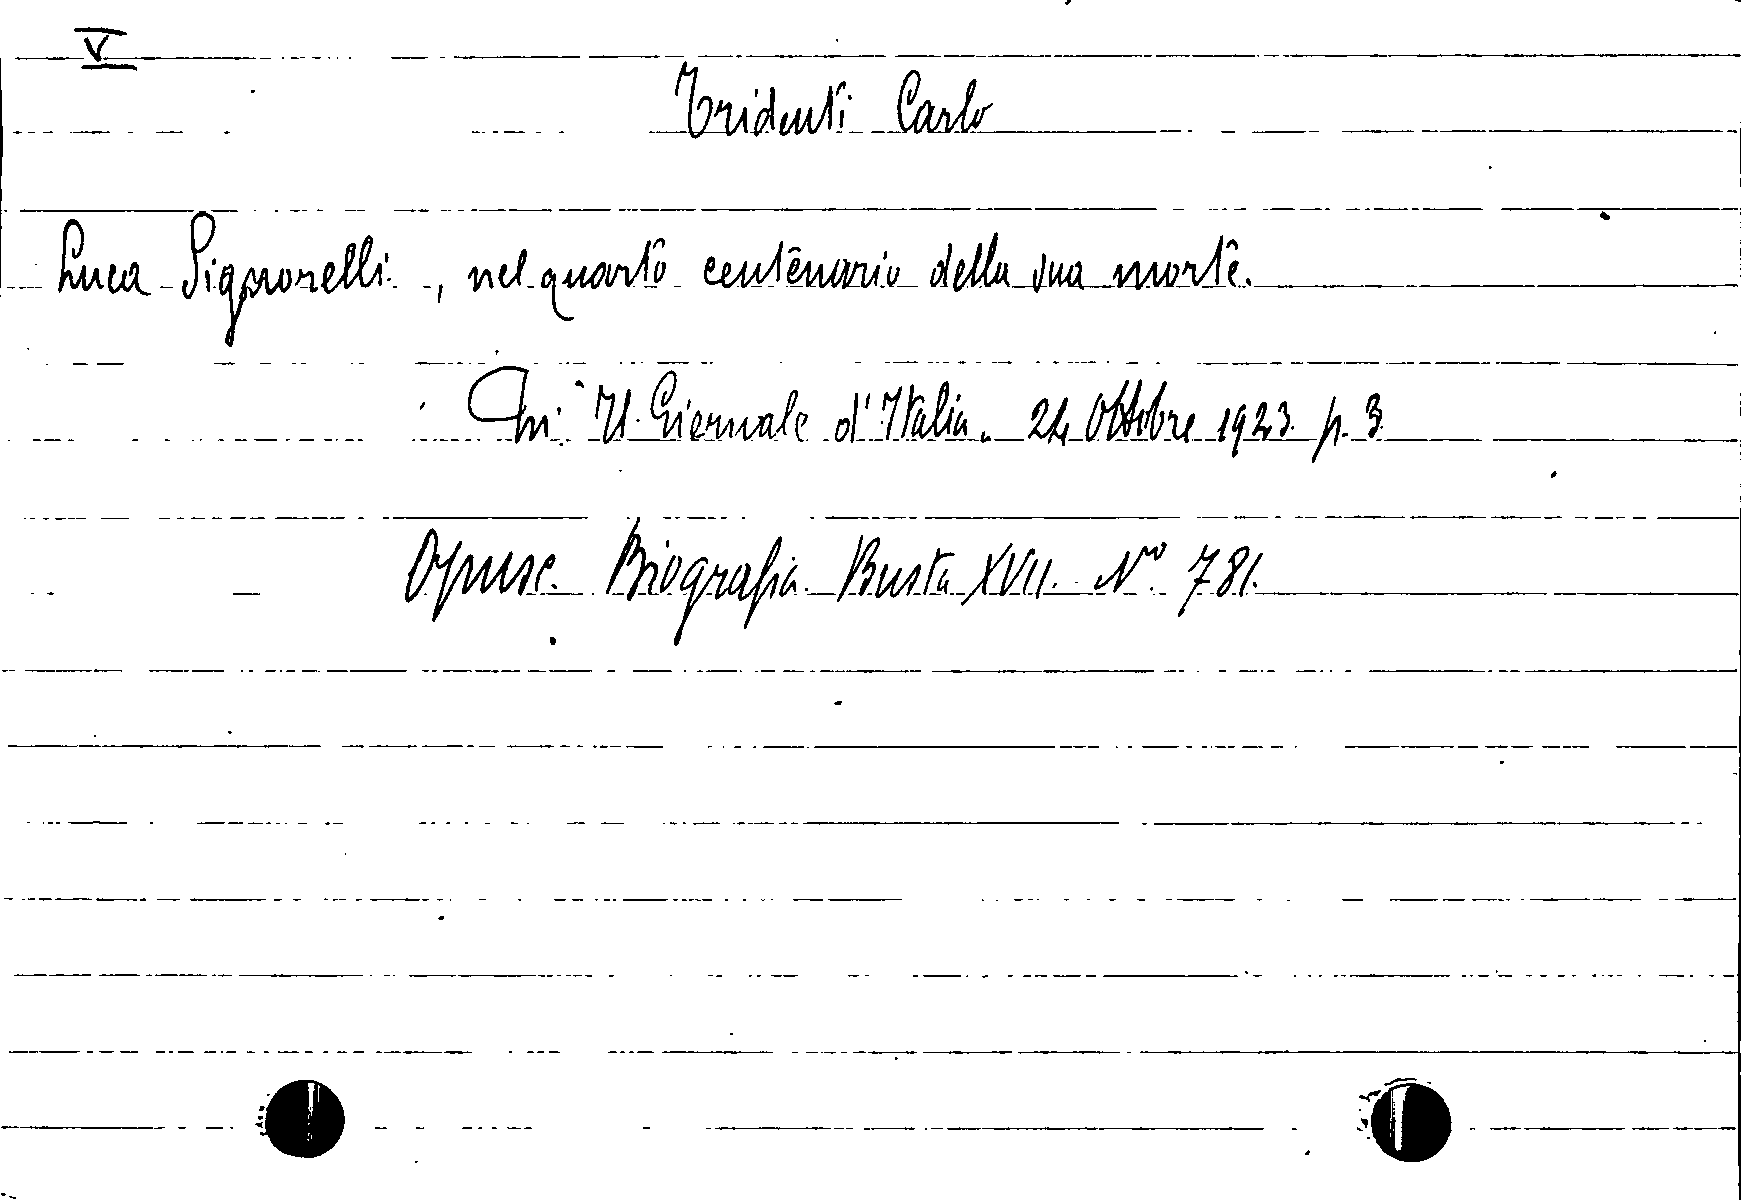 V
Tridenti Carlo
Luca Signorelli, nel quarto centenario della sua morte.
In "Il Giornale d'Italia. 24 Ottobre 1923. p. 3
Opusc. Biografia Busta XVII. N.º 781.